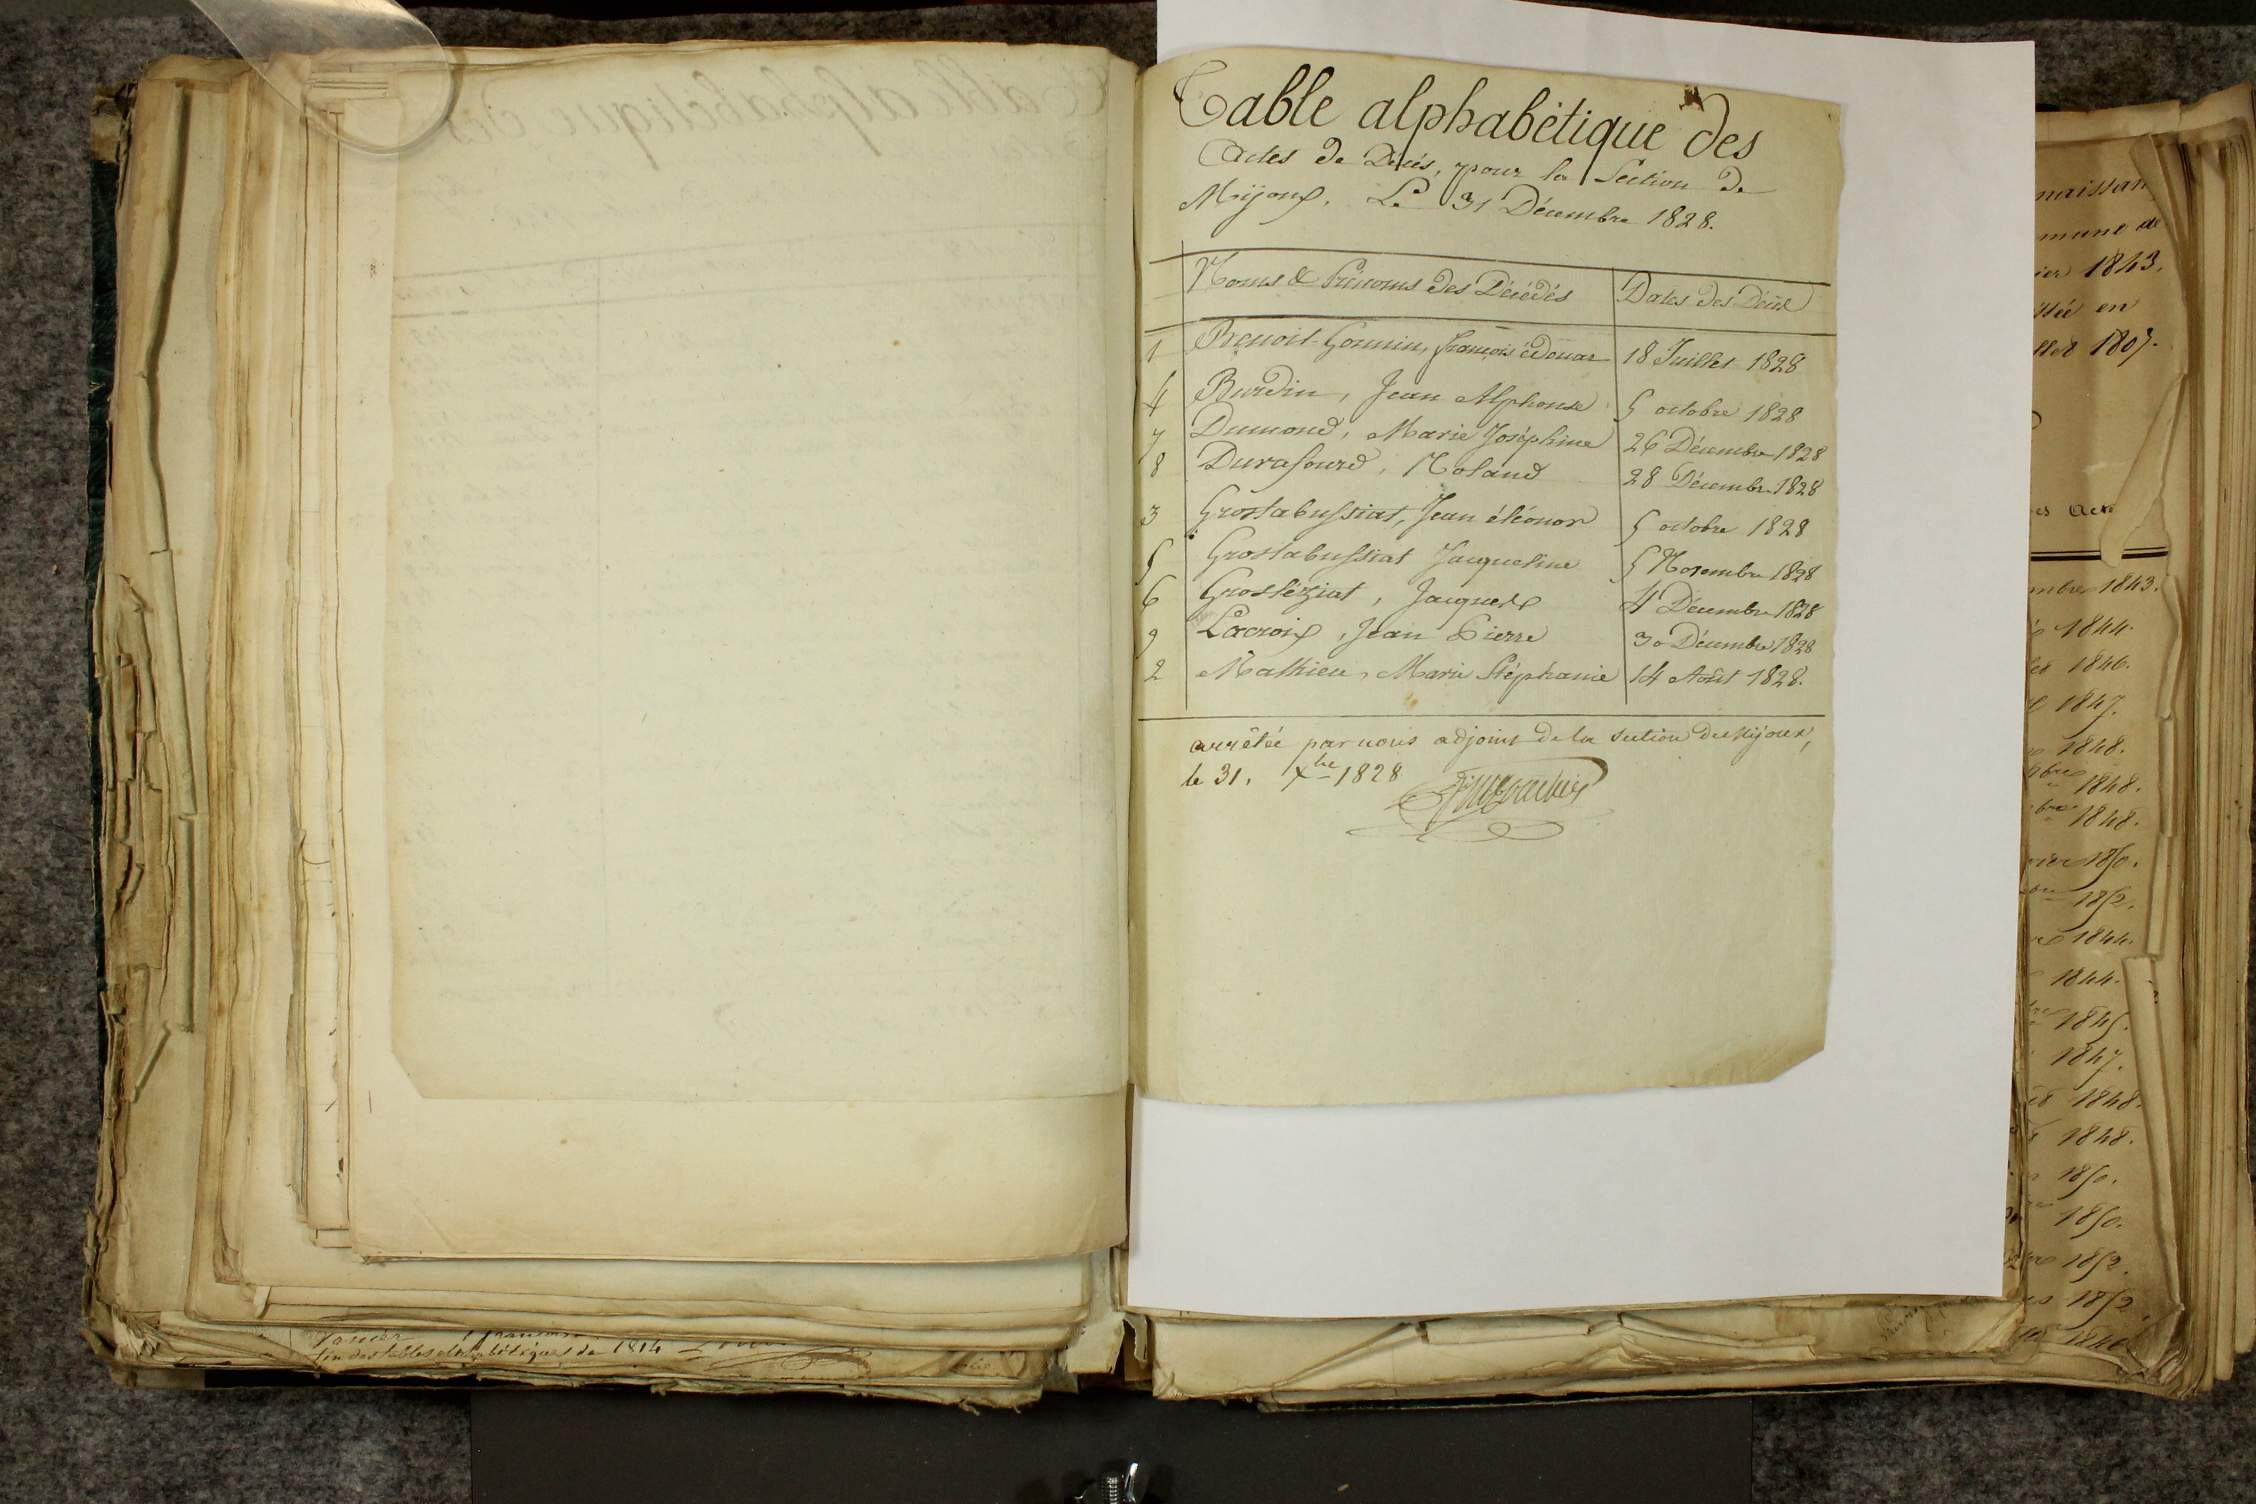 Table alphabétique des
Actes de Décès, pour la Section de
Mijoux. Le 31 Décembre 1828.
Noms & Prénoms des Décédés Dates des Décès
1 Benoit-Gonnin, françois édouar 18 Juillet 1828
4 Burdin, Jean Alphonse 5 octobre 1828
7 Dumond, Marie Joséphine 26 Décembre 1828
8 Durafourd, Roland 28 Décembre 1828
3 Grostabussiat, Jean éléonor 5 octobre 1828
5 Grostabussiat Jacqueline 5 Novembre 1828
6 Grosléziat, Jacques 4 Décembre 1828
9 Lacroix, Jean Pierre 30 Décembre 1828
2 Mathieu, Marie Stéphanie 14 Août 1828.
arrêtée par nous adjoint de la section de Mijoux,
le 31. Xbre 1828
fin des tables alphabétiques de 1814
1843.
1807.
mbre 1843.
1844.
1846.
1847.
1848.
1848.
1848.
1850.
1852.
1844.
1844.
1845.
1847.
1848.
1848.
1850.
1850.
1852.
1852